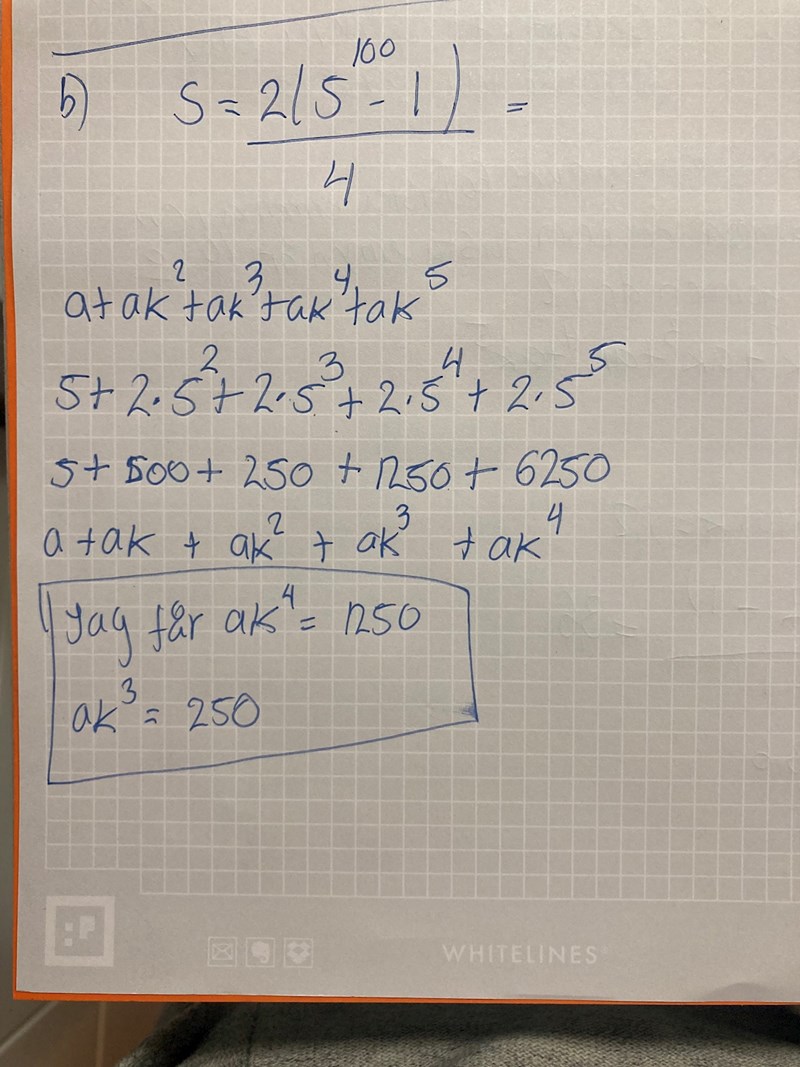 b) S = 2(5^100 - 1) / 4 =
a+ak^2+ak^3+ak^4+ak^5
5+2·5^2+2·5^3+2·5^4+2·5^5
5+500+250+1250+6250
a+ak + ak^2 + ak^3 + ak^4
Jag får ak^4 = 1250
ak^3 = 250
WHITELINES